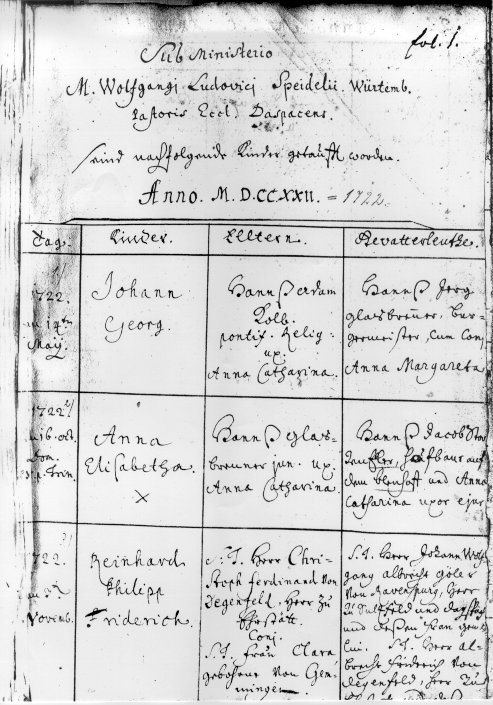 fol. 1.
Sub Ministerio
M. Wolfgangi Ludovici Speidelii Würtemb.
Pastoris Eccl. Daspacens.
seind nachfolgende Kinder getaufft worden.
Anno. M.D.CCXXII. = 1722.
Tag.
Kinder.
Eltern.
Gevatterleuthe.
1/
1722.
Maÿ.
Johann
Georg.
Hannß Adam
Kolb.
pontif. Relig:
ux.
Anna Catharina.
Hannß Jerg
Glasbrenner, bur-
germeister, cum Conj.
Anna Margareta
2/
1722
16. oct.
Anna
Elisabetha.
X
Hannß Glas-
brenner jun. ux.
Anna Catharina.
Hannß Jacob
hofbaur auf
dem und Anna
Catharina uxor ejus
3/
1722.
Novemb.
Reinhard
Philipp
Friderich.
S. T. Herr Chri-
stoph Ferdinand von
Degenfeld, Herr zu
Conj.
S. T. Frau Clara
gebohrne von Gem-
mingen
S. T. Herr Johann Wolf-
gang Albrecht Göler
von Ravenspurg, Herr
zu Sultzfeld und
und
S. T. Herr Al-
brecht Friderich von
Degenfeld, Herr zu